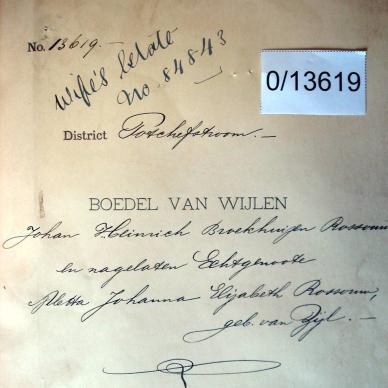 No. 13619.—
0/13619
Wife's Estate
No. 84843
District Potchefstroom.—
BOEDEL VAN WIJLEN
Johan Heinrich Broekhuizen Rossouw
en nagelaten Echtgenoote
Aletta Johanna Elizabeth Rossouw,
geb. van Zijl.—